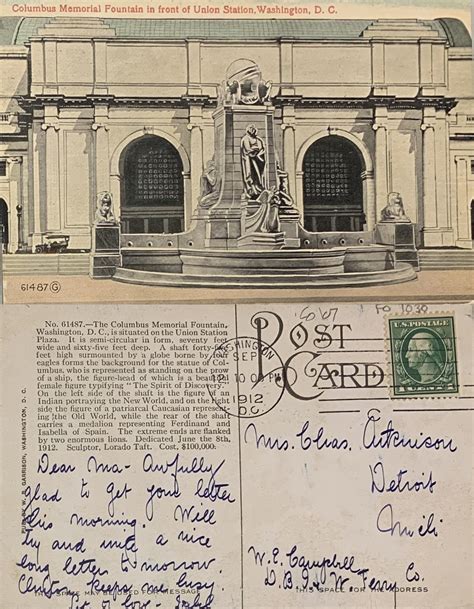 Columbus Memorial Fountain in front of Union Station, Washington, D. C.
61487 G
No. 61487.—The Columbus Memorial Fountain,
Washington, D. C., is situated on the Union Station
Plaza. It is semi-circular in form, seventy feet
wide and sixty-five feet deep. A shaft forty-five
feet high surmounted by a globe borne by four
eagles forms the background for the statue of Col-
umbus, who is represented as standing on the prow
of a ship, the figure-head of which is a beautiful
female figure typifying "The Spirit of Discovery."
On the left side of the shaft is the figure of an
Indian portraying the New World, and on the right
side the figure of a patriarcal Caucasian represent-
ing the Old World, while the rear of the shaft
carries a medallion representing Ferdinand and
Isabella of Spain. The extreme ends are flanked
by two enormous lions. Dedicated June the 8th,
1912. Sculptor, Lorado Taft. Cost, $100,000:
PUB. BY W. B. GARRISON, WASHINGTON, D. C.
Dear Ma- Awfully
glad to get your letter
this morning. Will
try and write a nice
long letter to morrow.
keeps me busy
of love-
THIS SPACE MAY BE USED FOR MESSAGE
POST
CARD
1030
WASHINGTON
SEP
12
1912
D.C.
U.S. POSTAGE
Mrs. Chas. Aitkinson
Detroit
Mich
W. E. Campbell
Co.
THIS SPACE IS FOR THE ADDRESS